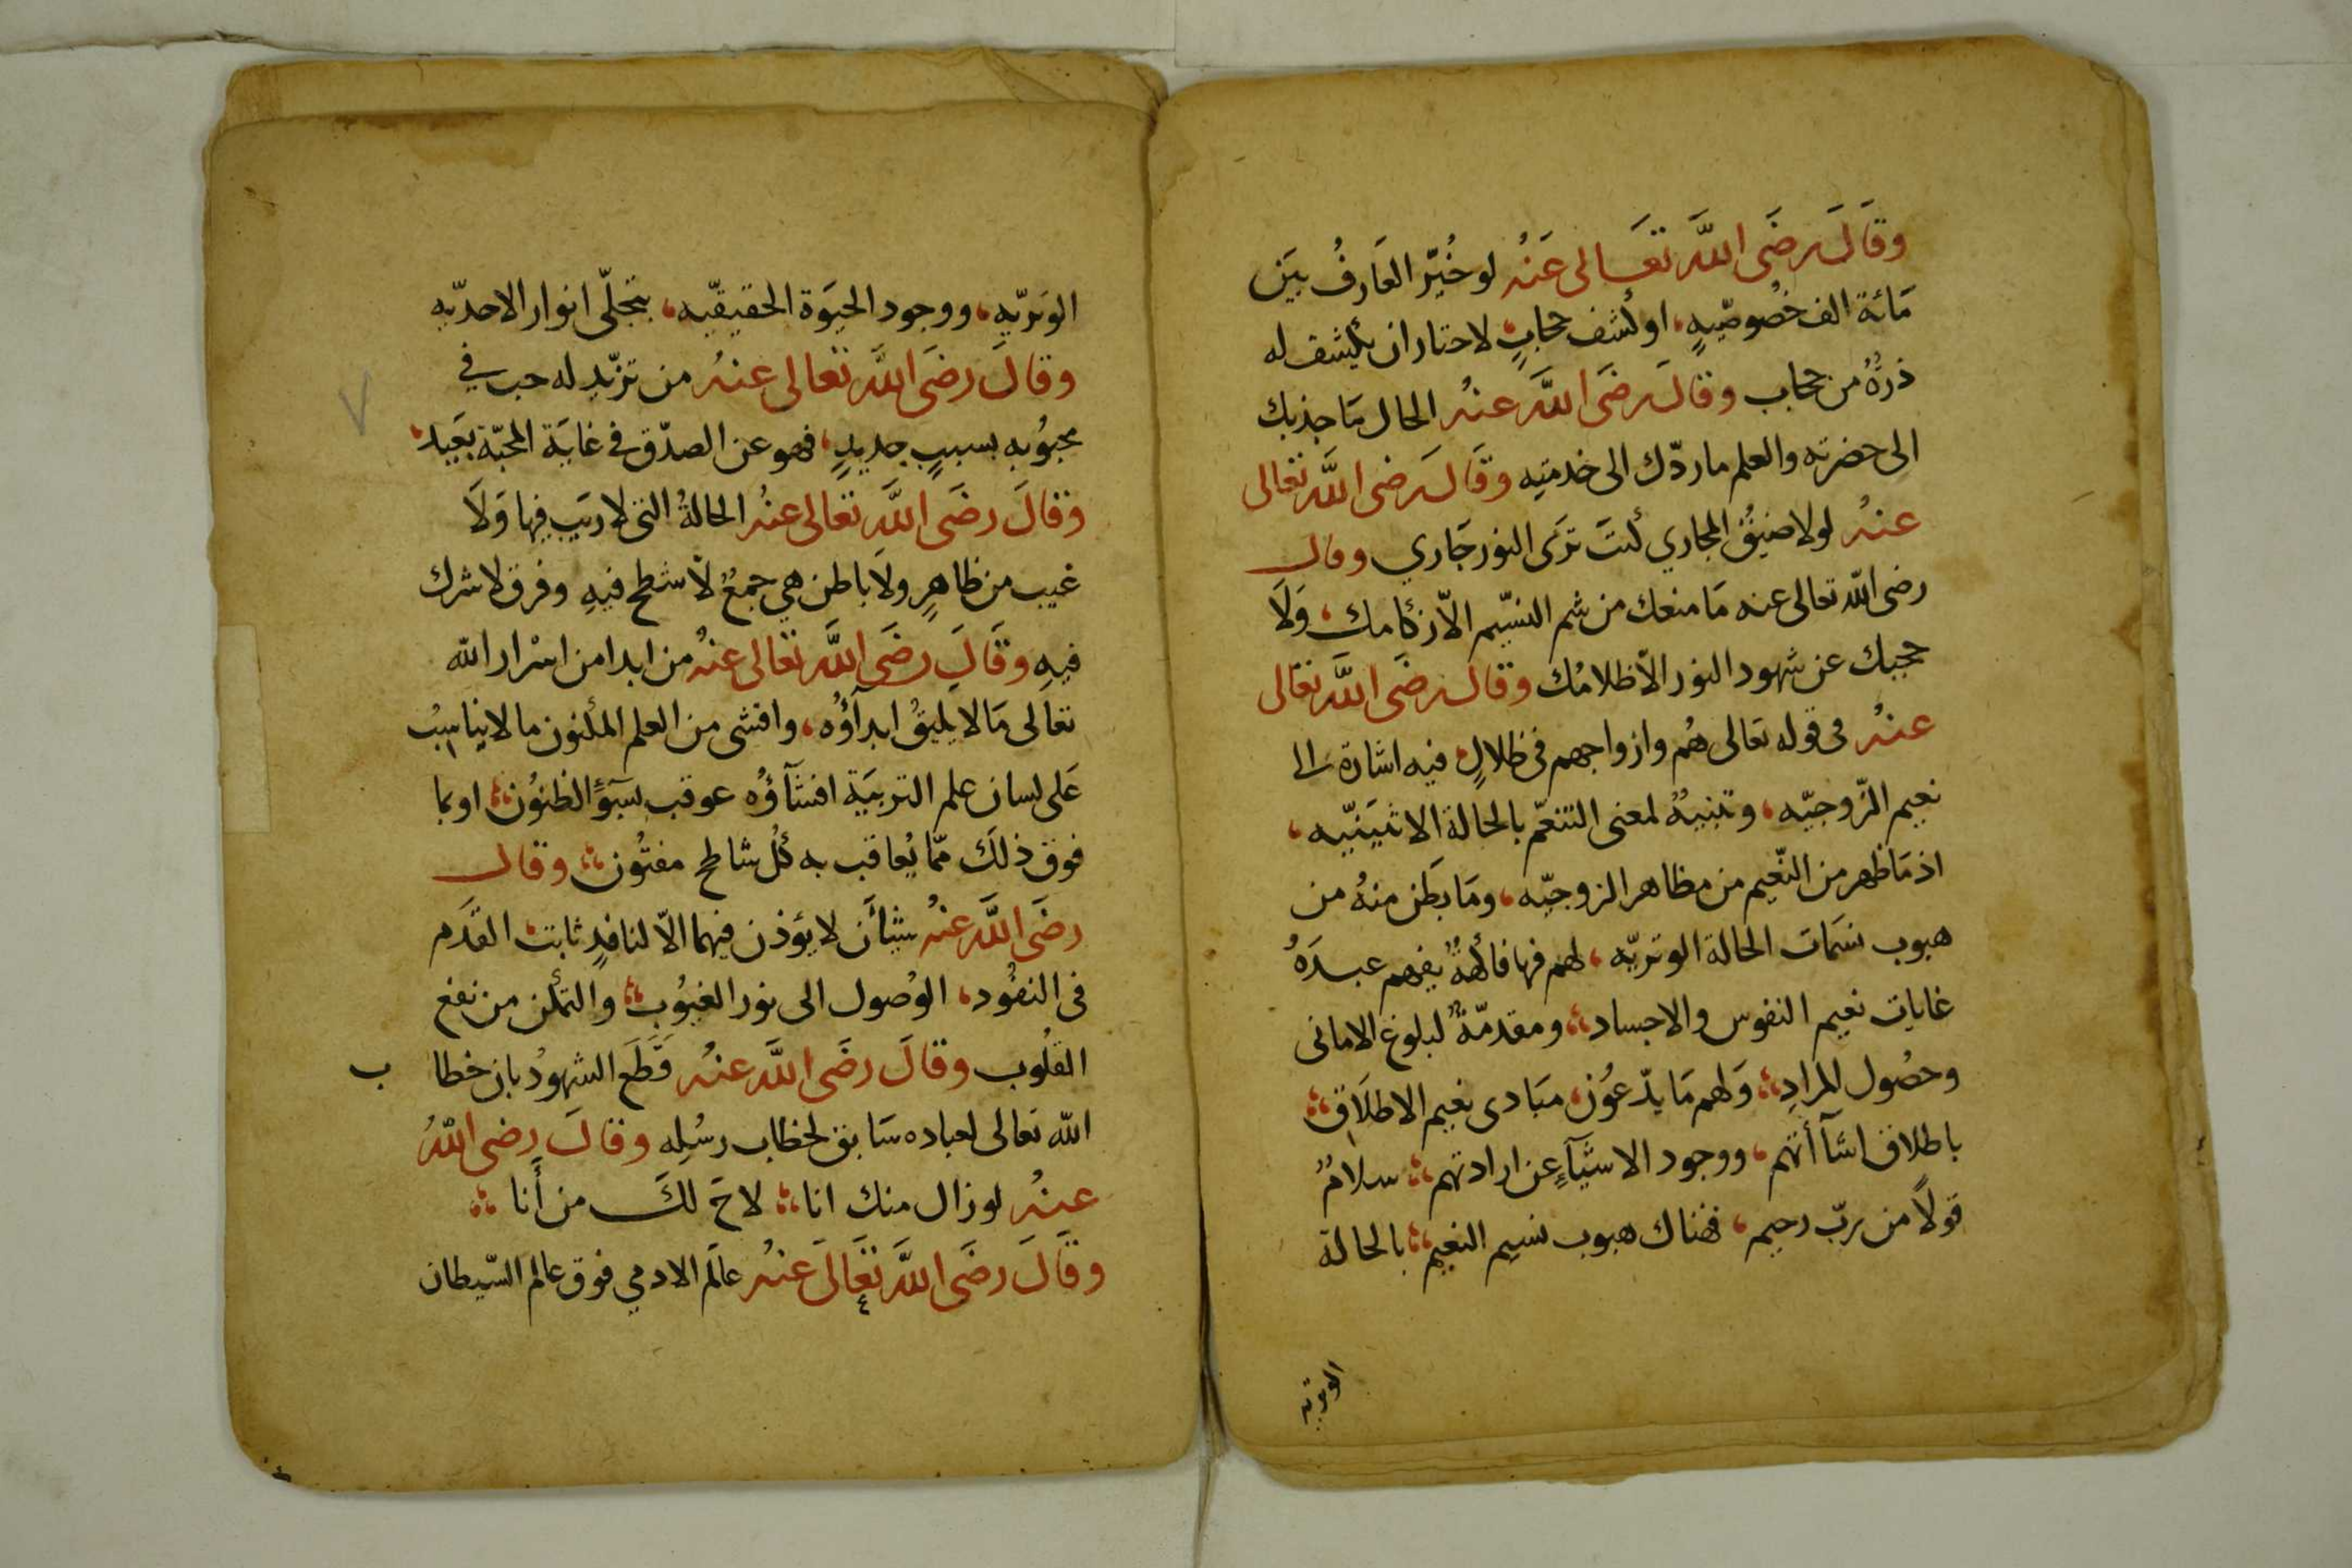 وقَالَ رضَى اللَّه تعَالى عَنْهُ لو خُيّر العَارفُ بيَن
مَائة الف خصُوصّيهٍ، اوكشف حجابٍ لاختار ان يكشف له
ذرةً من حجاب وقالَ رضَى اللَّه عنهُ الحال مَا جذبك
الى حضرته والعلم ما ردّك الى خدمتِه وقَالَ رضى اللَّه تعالى
عنهُ لولا ضيقُ المجاري كنتَ ترَى النور جَاري وقال
رضى اللّه تعالى عنه مَا منعك من شم النسّيم الاّ زكامك، وَلَا
حجبك عن شهود النور الاّ ظلامُك وقالَ رضَى اللَّه تعَالى
عنهُ فى قوله تعالى هُم وازواجهم فى ظلالٍ فيه اشارة الى
نعيم الزّوجيّه، وتنبيهٌ لمعنى التنعّم بالحالة الاثنينيّه،
اذ مَا ظهر من النّعيم من مظاهر الزوجيّه، ومَا بَطَن منهُ من
هبوب نسَمات الحالة الوتريّه، لهم فيها فاكهةٌ يفهم عبدَهُ
غايات نعيم النفوس والاجساد، ومقدمّةٌ لبلوغ الامانى
وحصُول المرادِ، وَلهم مَا يدّعوُن، مبَادى نعيم الاطلَاق
باطلاق اشآأتهم، ووجود الاشيَآءِ عن ارادتهم، سلامٌ
قولاً من ربّ رحيم، فهناك هبوب نسيم النعيم، بالحالة
الوتريه
الوَتريّهِ، ووجود الحيَوَة الحقيقيّه، بتجلّى انوار الاحديّه
وقالَ رضَى اللَّه تعالى عنهُ من تزيد له حب في
محبوُبه بسببٍ جديدٍ، فهو عن الصدّق فى غايَة المحبّة بعَيد،
وقالَ رضَى اللَّه تعالى عنهُ الحالةُ التى لا ريَب فيها وَلَا
غيب من ظاهرٍ ولا باطن هي جمعٌ لاّ شطح فيهِ وفرق لا شرك
فيهِ وقَالَ رضَى اللَّه تعَالى عنهُ من ابدا من اسْرار اللّه
تعالى مَا لا يليقُ ابدآؤُه، وافشى من العلم المكنون ما لا يناسبُ
عَلى لسان علم التربيَة افشآؤُه عوقب بسَوءِ الظنوُن، او بما
فوق ذلَك ممّا يُعاقب به كُل شاطح مفتُون، وقال
رضَى اللَّه عنهُ شيئآن لا يؤذن فيهما الاّ لنافدٍ ثابت القَدَم
فى النفُود، الوُصول الى نور الغيُوب، والتمكن من نفع
القلُوب وقالَ رضَى اللَّه عنهُ قَطَع الشهوُد بان خطا ب
اللّه تعالى لعباده سَابق لخطاب رسُلِه وقالَ رضى اللّهُ
عنهُ لو زال منك انا، لاحَ لكَ من أَنا
وقَالَ رضَى اللَّه تعَالَى عَنهُ عالَم الادمي فوق عالم الشّيطان
٧
٤